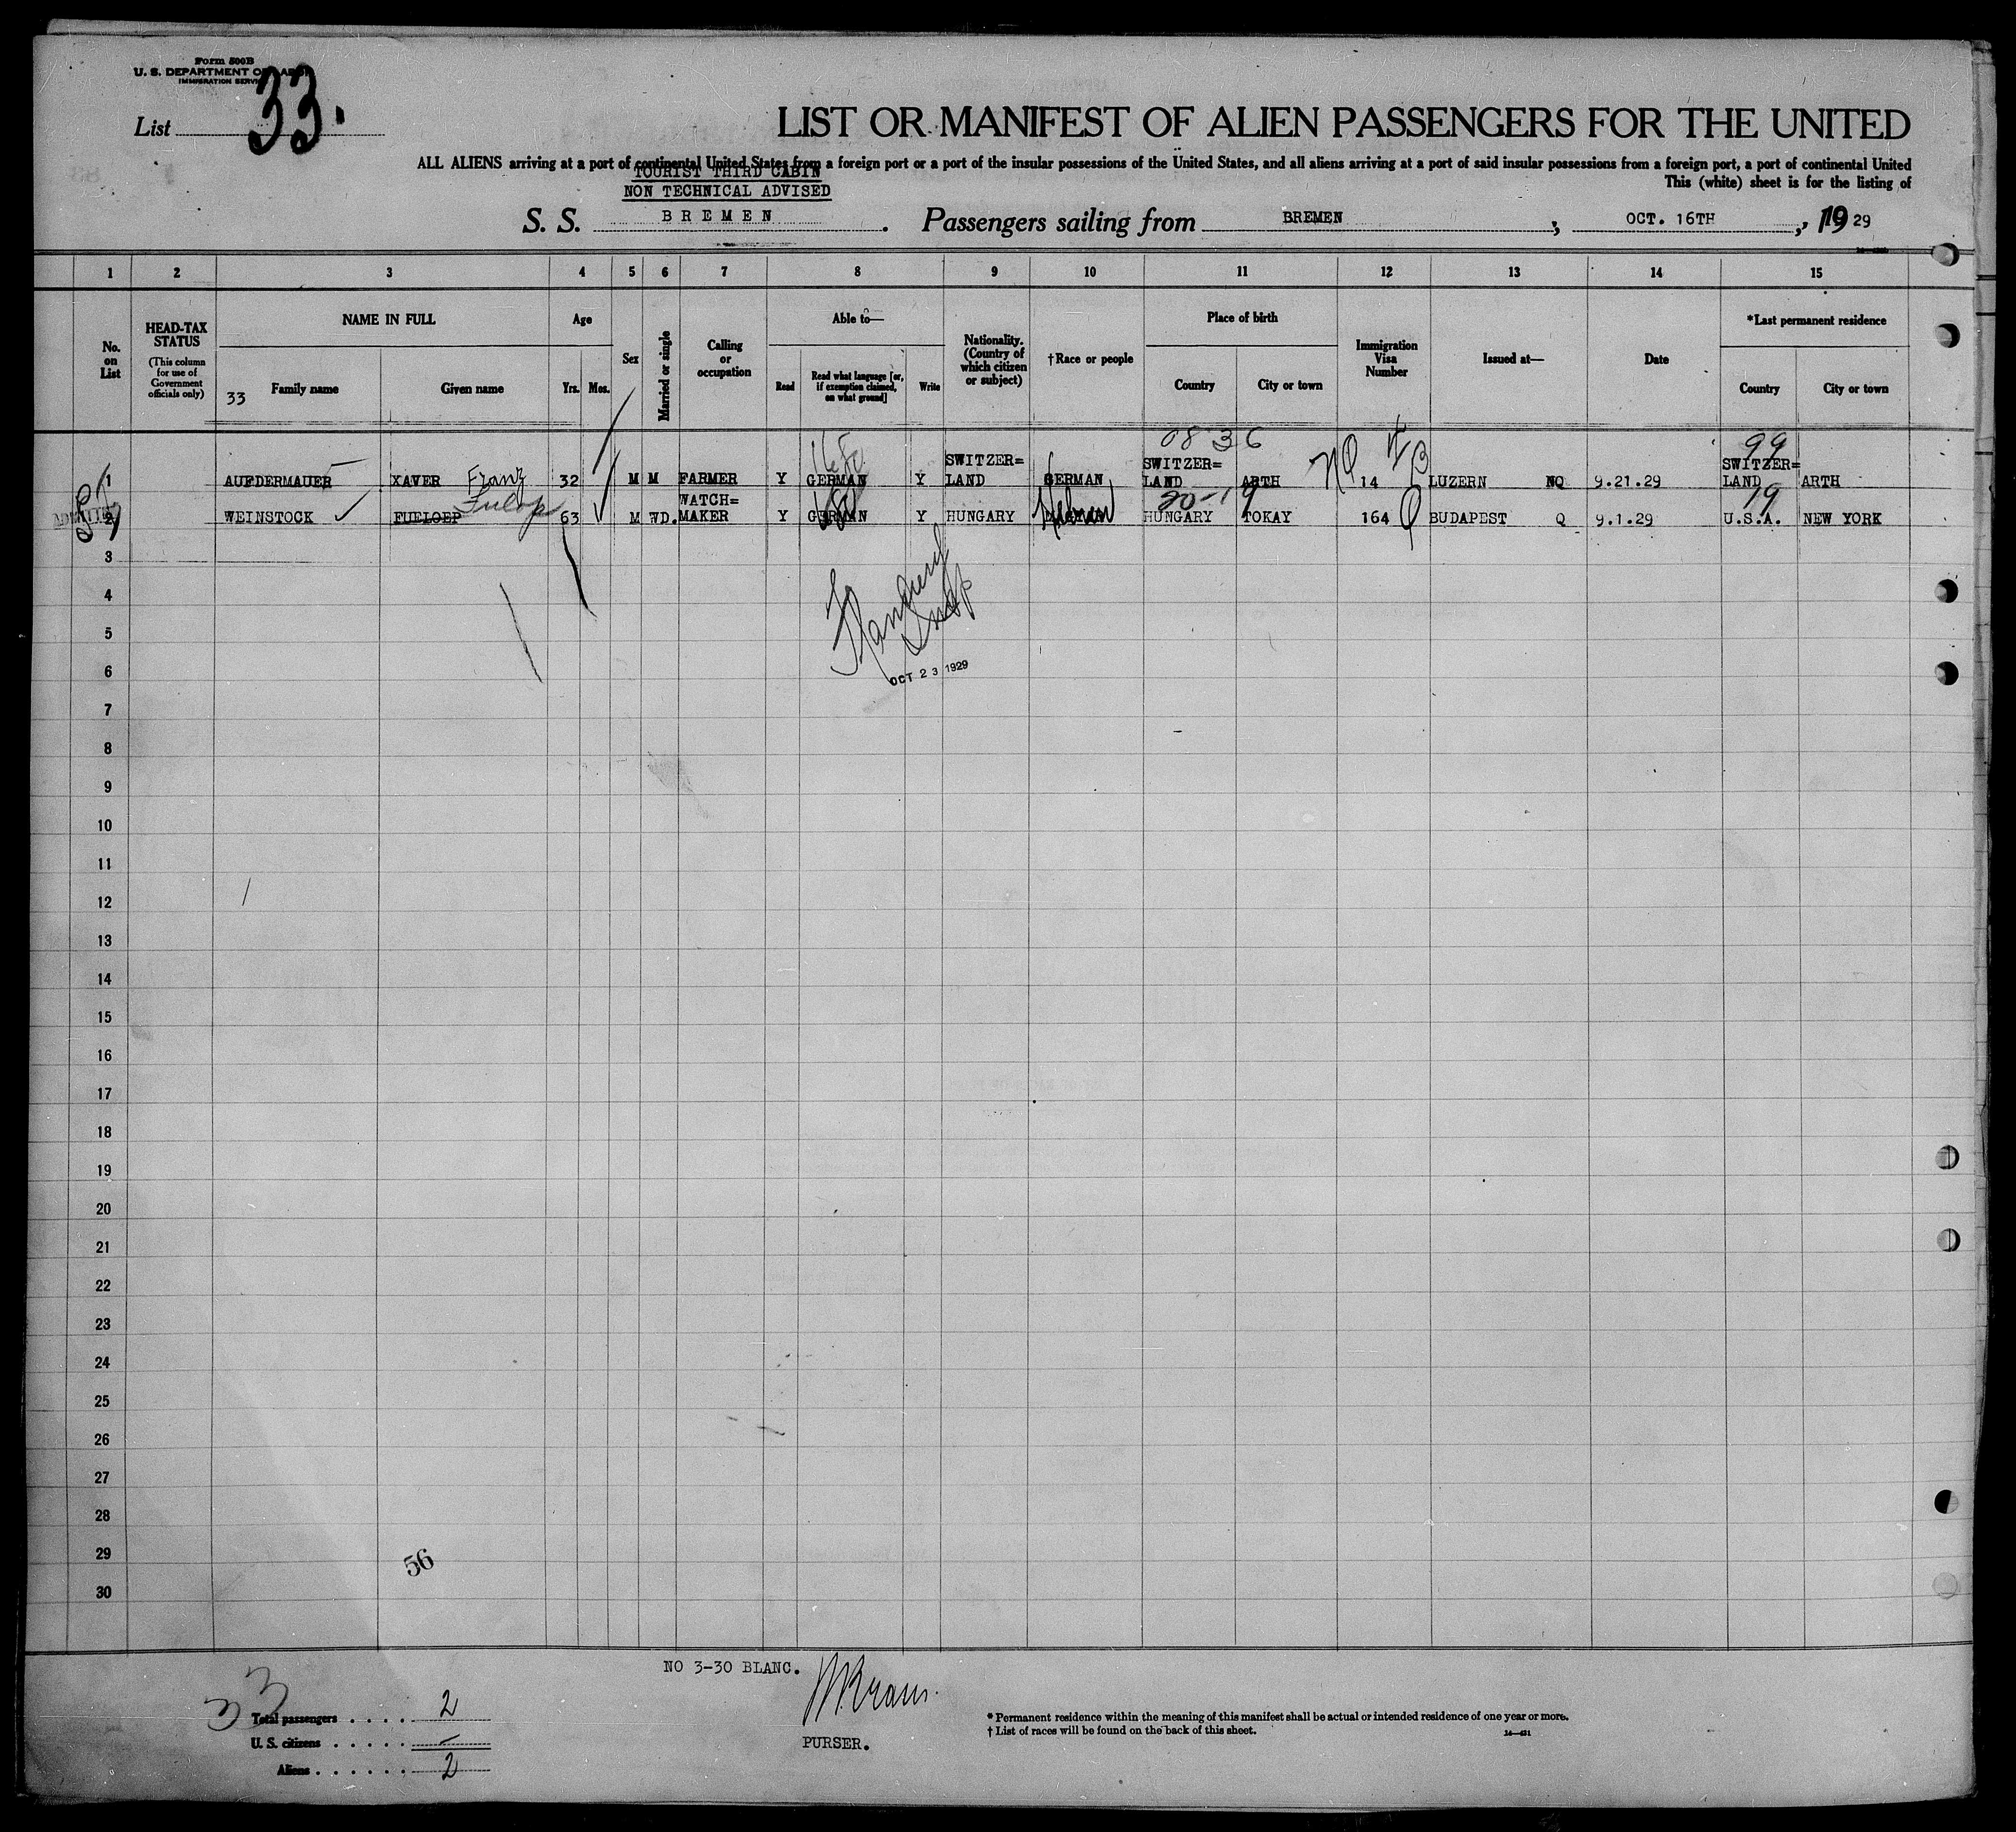 Form 500B
U. S. DEPARTMENT OF LABOR
IMMIGRATION SERVICE
List 33.
LIST OR MANIFEST OF ALIEN PASSENGERS FOR THE UNITED
ALL ALIENS arriving at a port of continental United States from a foreign port or a port of the insular possessions of the United States, and all aliens arriving at a port of said insular possessions from a foreign port, a port of continental United
TOURIST THIRD CABIN
This (white) sheet is for the listing of
NON TECHNICAL ADVISED
S. S. BREMEN. Passengers sailing from BREMEN, OCT. 16TH, 1929
1 2 3 4 5 6 7 8 9 10 11 12 13 14 15
No. on List
HEAD-TAX STATUS (This column for use of Government officials only)
NAME IN FULL
33 Family name
Given name
Age
Yrs. Mos.
Sex
Married or single
Calling or occupation
Able to—
Read
Read what language [or, if exemption claimed, on what ground]
Write
Nationality. (Country of which citizen or subject)
†Race or people
Place of birth
Country
City or town
Immigration Visa Number
Issued at—
Date
*Last permanent residence
Country
City or town
08 36
99
1 AUFDERMAUER XAVER Franz 32 M M FARMER Y GERMAN Y SWITZER= LAND GERMAN SWITZER= LAND ARTH NQ 14 LUZERN NQ 9.21.29 SWITZER= LAND ARTH
20-19
19
ADMITTED
2 WEINSTOCK FUELOEP Fulop 63 M WD. WATCH= MAKER Y GERMAN Y HUNGARY Hebrew HUNGARY TOKAY 164 Q BUDAPEST Q 9.1.29 U.S.A. NEW YORK
3
4
Insp
5
6
OCT 23 1929
7
8
9
10
11
12
13
14
15
16
17
18
19
20
21
22
23
24
25
26
27
28
29
56
30
NO 3-30 BLANC.
33
Total passengers . . . . . 2
U. S. citizens . . . . . —
Aliens . . . . . . 2
PURSER.
* Permanent residence within the meaning of this manifest shall be actual or intended residence of one year or more.
† List of races will be found on the back of this sheet.
14—431